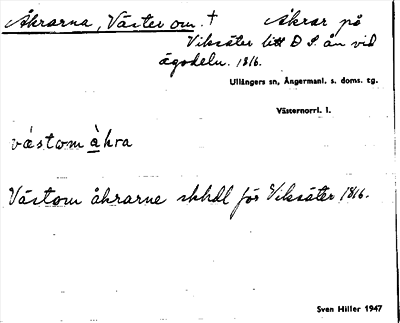 Åkrarna, Väster om. † Åkrar på
Viksäter litt D S. ån vid
ägodeln. 1816.
Ullångers sn, Ångermanl. s. doms. tg.
Västernorrl. l.
västom åkra
Västom åkrarne skhdl för Viksäter 1816.
Sven Hiller 1947